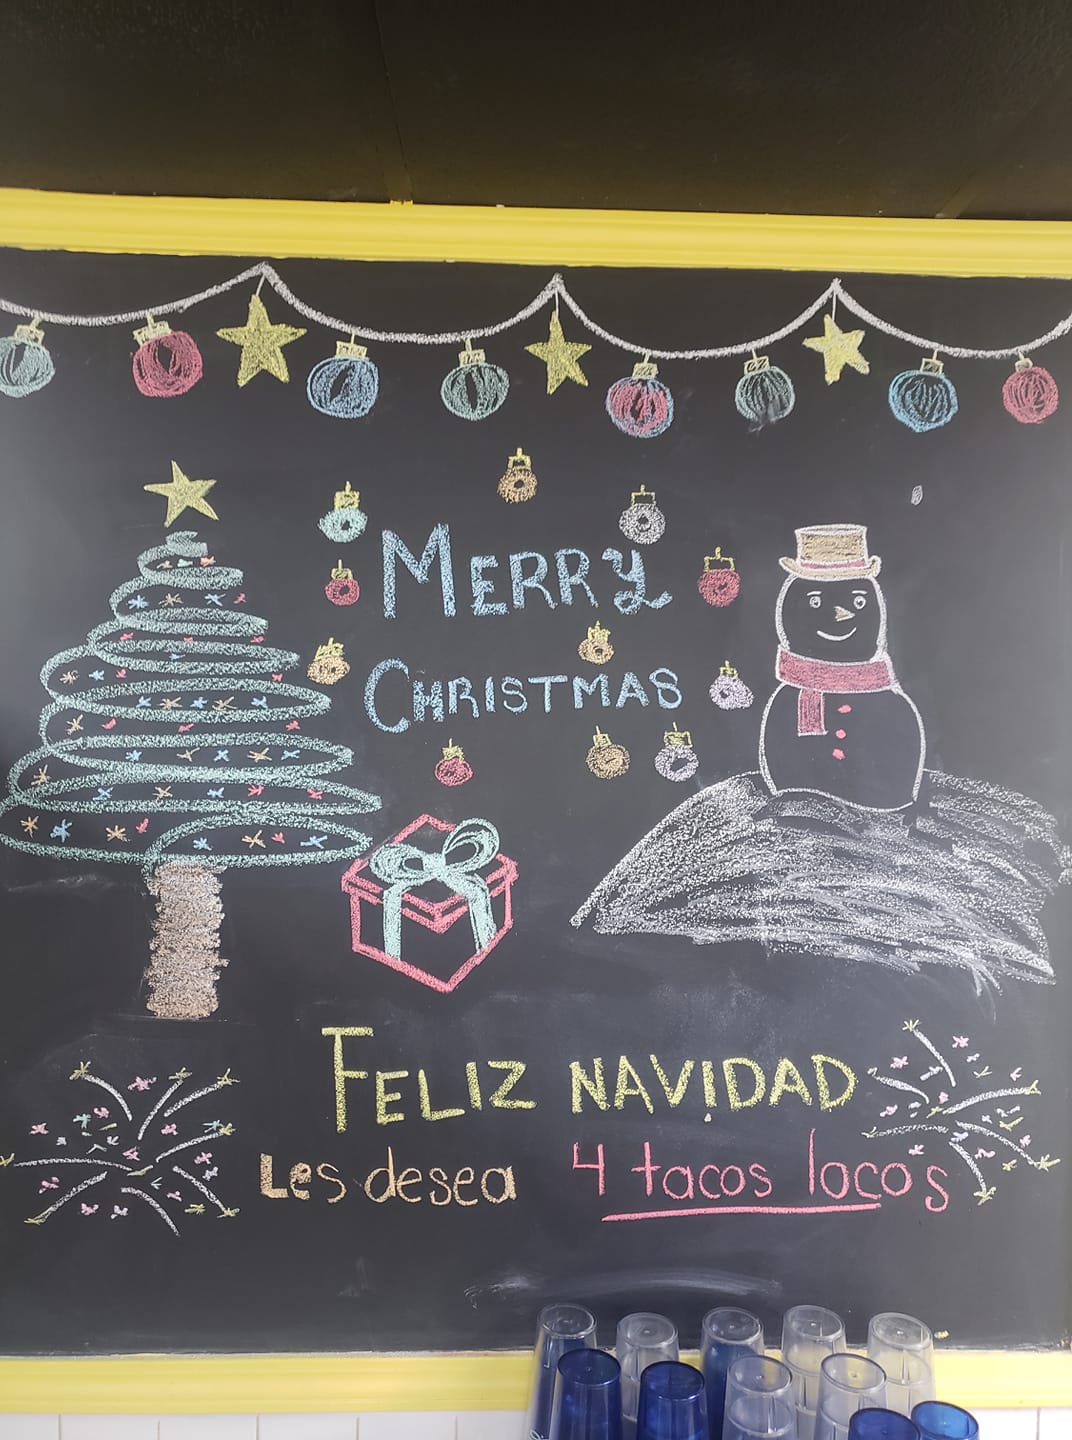 MERRY
CHRISTMAS
FELIZ NAVIDAD
Les desea 4 tacos locos